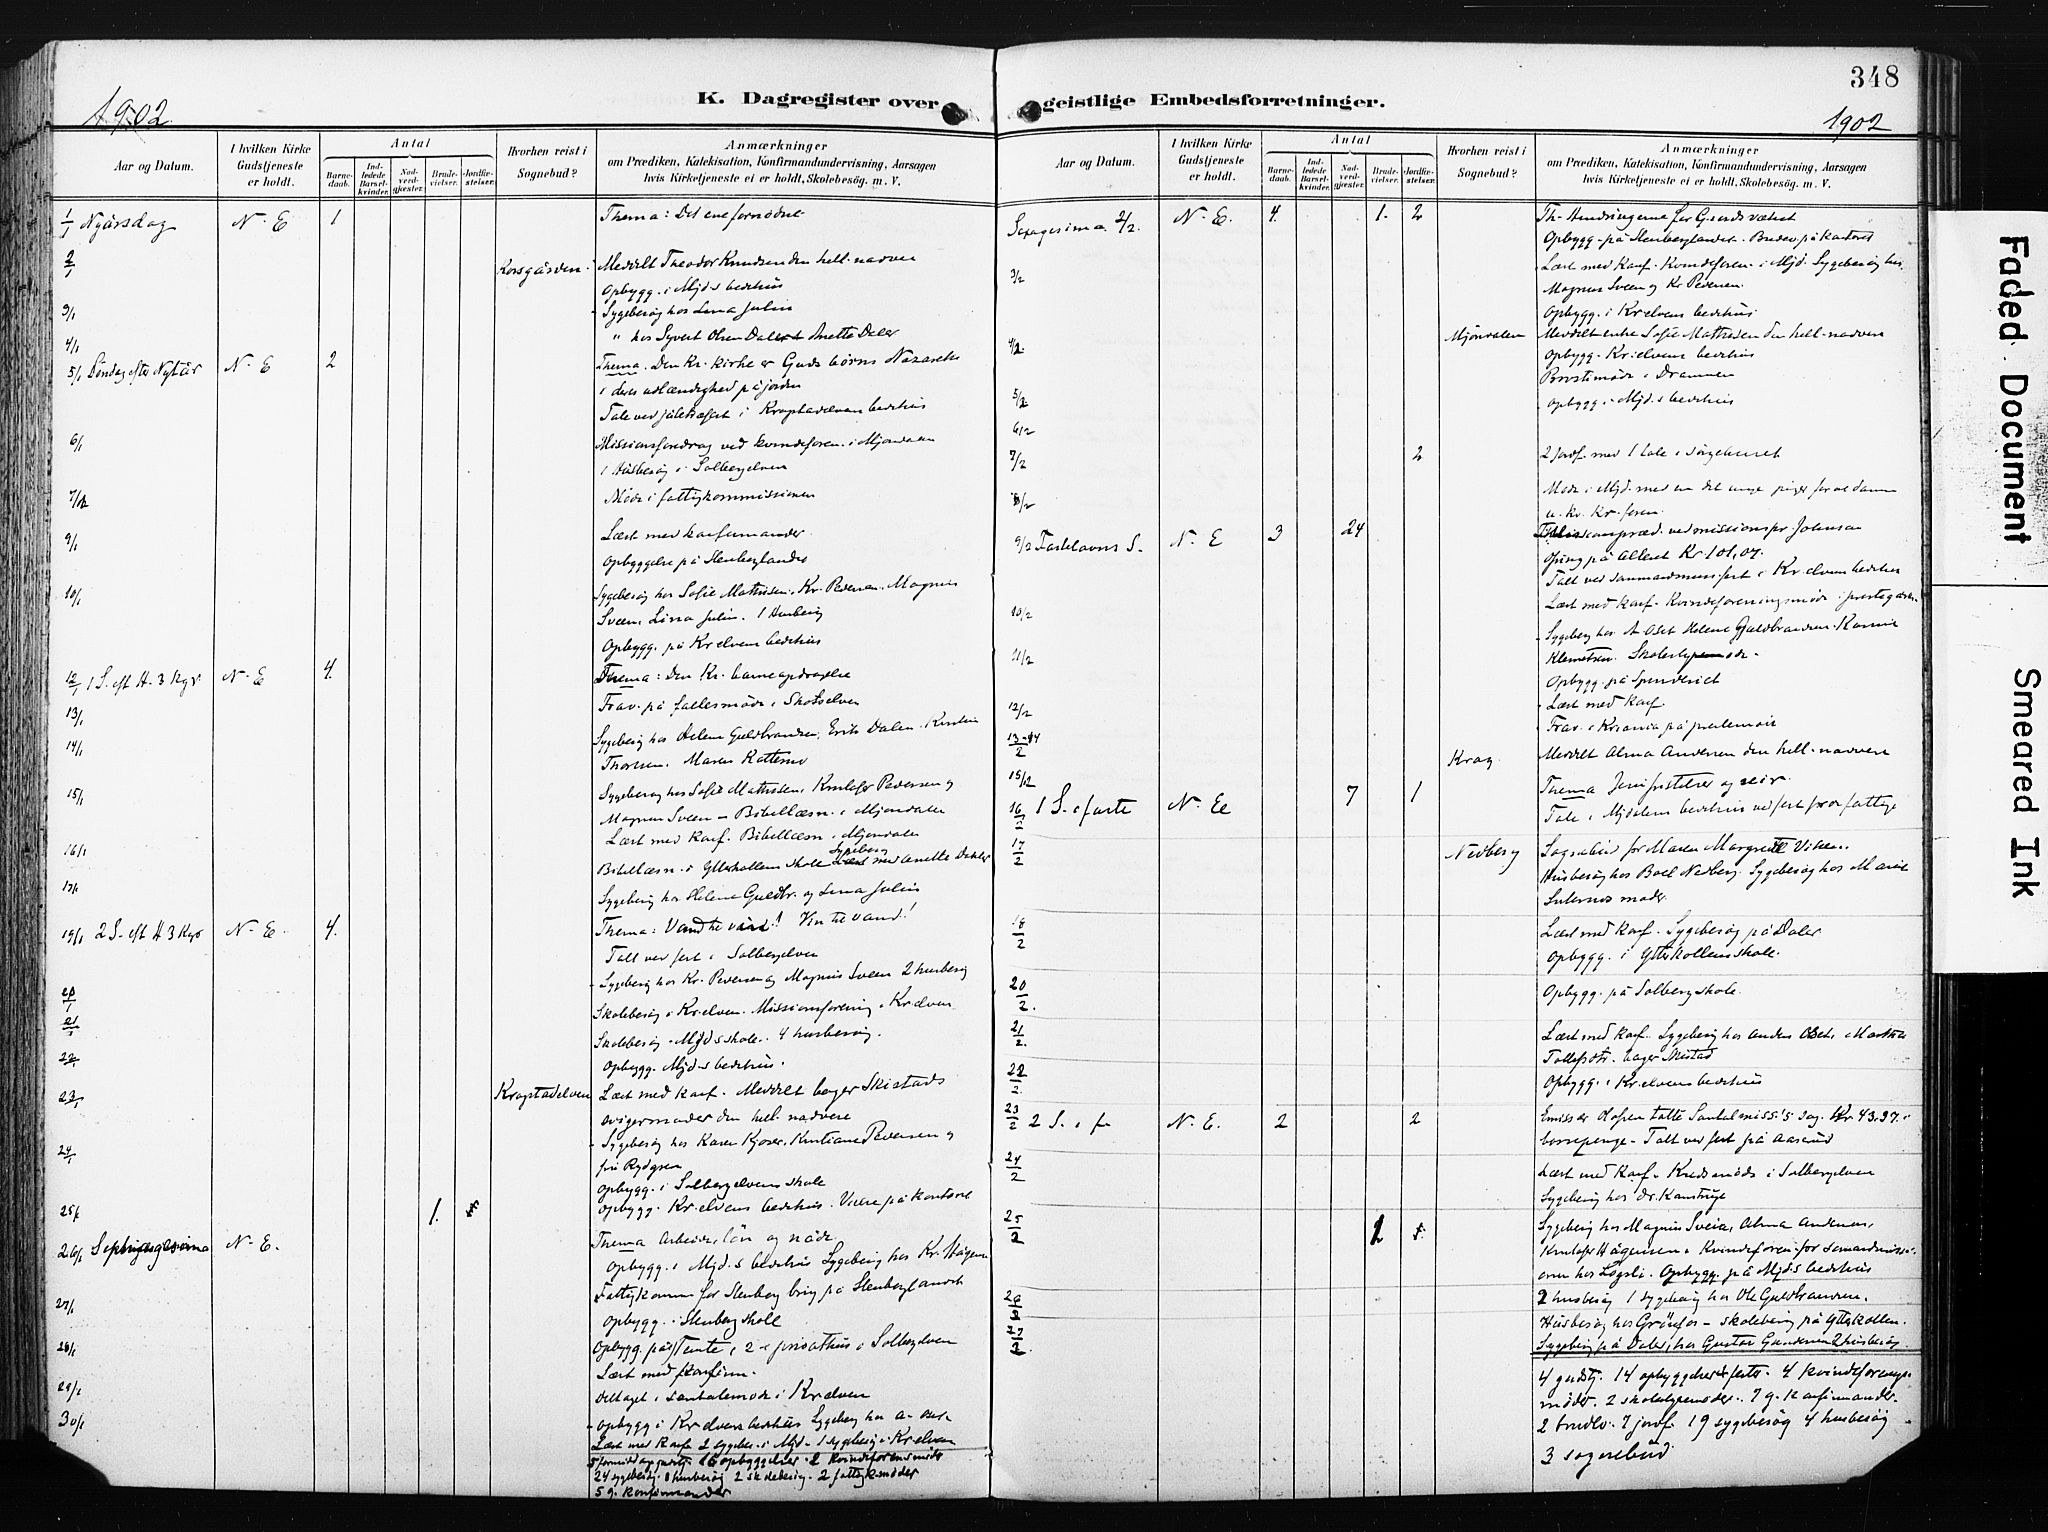 348
K. Dagregister over geistlige Embedsforretninger.
1902
1902
Aar og Datum.
I hvilken Kirke Gudstjeneste er holdt.
Antal
Barnedaab.
Indledede Barselkvinder.
Nadverdgjester.
Brudevielser.
Jordfæstelser.
Hvorhen reist i Sognebud?
Anmærkninger
om Prædiken, Katekisation, Konfirmandundervisning, Aarsagen
hvis Kirketjeneste ei er holdt, Skolebesøg. m. V.
1/1 Nyårsdag N. E 1 Thema: Det ene fornødne
2/1 Korsgården Meddelt Theodor Knudsen den hell. nadver
Opbygg. i Mjd.s bedehus
3/1 Sygebesøg hos Lina Julin
4/1 " hos Syvert Olsen Dalen Anette Daler
5/1 Søndag efter Nytår N. E 2 Thema. Den Kr. kirke er Guds børns Nazareth
i deres udlændighed på jorden
Tale ved juletræfest i Krogstadelven bedehus
6/1 Missionsforedrag ved kvindeforen. i Mjøndalen
1 Husbesøg i Solbergelven
7/1 Møde i fattigkommissionen
9/1 Læst med konfirmander
Opbyggelse på Stenberglandet
10/1 Sygebesøg hos Sofie Mathisen, Kr. Pedersen, Magnus
Sveen, Lina Julin. 1 Husbesøg
Opbygg. på Kr.elven bedehus
12/1 1 S. eft H. 3 Kgr N. E 4. Thema: Den Kr. barneopdragelse
13/1 Frav. på fællesmøde i Skotselven
14/1 Sygebesøg hos Helene Guldbrandsen, Erik Dalen, Kristin
Thorsen. Maren
15/1 Sygebesøg hos Sofie Mathisen, Kristofer Pedersen og
Magnus Sveen - Bibellæsn. i Mjøndalen
16/1 Læst med konf. Bibellæsn. i Mjøndalen
Bibellæsn. i Ytterkollens skole Sygebesøg Anette Daler
17/1 Sygebesøg hos Helene Guldbr. og Lina Julin
19/1 2 S. eft H 3 Kgr N. E. 4. Thema: Vand til vin! Vin til vand!
Talt ved fest i Solbergelven
20/1 Sygebesøg hos Kr. Pedersen og Magnus Sveen 2 husbesøg
21/1 Skolebesøg i Kr.elven. Missionsforening i Kr.elven
Skolebesøg i Mjd.s skole. 4 husbesøg.
22/1 Opbygg. Mjd.s bedehus.
23/1 Krogstadelven Læst med konf. Meddelt bager Skistads
svigermoder den hel. nadvere
24/1 Sygebesøg hos Karen Kjøser, Kristiane Pedersen og
fru Rydgren
Opbygg. i Solbergelvens skole
25/1 1. Opbygg. Kr.elvens bedehus. Viede på kontoret
26/1 Septuagesima N. E. Thema Arbeide, løn og nåde
Opbygg. i Mjd.s bedehus Sygebesøg hos Kr. Hågensen
27/1 Fattigkomm for Stenberg brug på Stenberglandet
Opbygg. i Stenberg skole
28/1 Opbygg. på Tente, i 2 privathus i Solbergelven
Læst med konfirm.
29/1 Deltaget i santalmøde i Kr.elven
30/1 Opbygg i Kr.elvens bedehus Sygebesøg hos A. Oset
Læst med konf 2 sygebes. i Mjd. 1 sygebesøg i Kr.elven
16 opbyggelser. 2 kvindeforensmøde
24 sygebesøg. 8 husbesøg 2 skolebesøg. 2 fattigkmøder
5 g. konfirmander
Aar og Datum.
I hvilken Kirke Gudstjeneste er holdt.
Antal
Barnedaab.
Indledede Barselkvinder.
Nadverdgjester.
Brudevielser.
Jordfæstelser.
Hvorhen reist i Sognebud?
Anmærkninger
om Prædiken, Katekisation, Konfirmandundervisning, Aarsagen
hvis Kirketjeneste ei er holdt, Skolebesøg. m. V.
Sexagesima 2/2. N. E. 4. 1. 2 Th. Hindringerne for G. ords vækst
Opbygg. på Stenberglandet. Brudev på kontoret
3/2 Læst med konf. Kvindeforen. i Mjd. Sygebesøg hos
Magnus Sveen og Kr Pedersen.
Opbygg. i Kr.elvens bedehus
4/2 Mjøndalen Meddelt enke Sofie Mathisen den hell. nadvere
Opbygg. Kr.elvens bedehus
Provstimøde i Drammen
5/2 Opbygg. i Mjd.s bedehus
6/2
7/2 2 2 jordf. med 1 tale i sørgehuset
8/2 Møde i Mjd. med
u. kv. Kr. foren.
9/2 Fastelavns S. N. E 3 24 Missionspræd. ved missionspr. Johnson
Ofring på alteret Kr 101,07.
Talt ved sømandsmissfest i Kr.elven bedehus
10/2 Læst med konf. Kvindeforeningsmøde i prestegården
11/2 Sygebesøg hos A Oset Helene Guldbrandsen Karine
Klemetsen. Skolestyremøde
Opbygg. på Spenderiet
12/2 Læst med konf.
13-14/2 Frav. i Kr.ania på prestemøde
15/2 Krog. Meddelt Alma Andersen den hell. nadvere
16/2 1 S. i faste N. E 7 1 Thema Jesu fristelser og seir.
Tale i Mjdalens bedehus ved fest for fattige
17/2 Nedberg Sognebud for Maren Margrete Viken.
Husbesøg hos Boel Nedberg. Sygebesøg hos Marie
moder
18/2 Læst med konf. Sygebesøg på Daler
Opbygg. i Ytterkollens skole.
20/2. Opbygg. på Solberg skole.
21/2. Læst med konf. Sygebesøg hos Anders Oset, Martha
Tollefsdtr. bager Skistad
22/2 Opbygg. i Kr.elvens bedehus
23/2 2 S. i fa N. E. 2 2 Emissær Olsen talte Santalmiss's sag. Kr 43.97 i
bøssepenge - Talt ved fest på Aaserud
24/2 Læst med konf. Kredsmøde i Solbergelven
Sygebesøg hos dr. Kamstrup
25/2 1 5. Sygebesøg hos Magnus Sveia, Alma Andersen,
Kristofer Hågensen. Kvindeforen. for sømandsmiss-
onen hos Løgsli. Opbygg. på Mjd.s bedehus
26/2 2 husbesøg 1 sygebesøg hos Ole Guldbrandsen.
27/2. Husbesøg hos Grønfos - skolebesøg på Ytterkollen.
Sygebesøg på Daler, hos Gustav Gundersen 2 husbesøg.
4 gudstj. 14 opbyggelser + fester. 4 kvindeforenings-
møder. 2 skolestyremøder. 7 g. konfirmander.
2 brudev. 7 jordf. 19 sygebesøg 4 husbesøg
3 sognebud
Faded Document
Smeared Ink